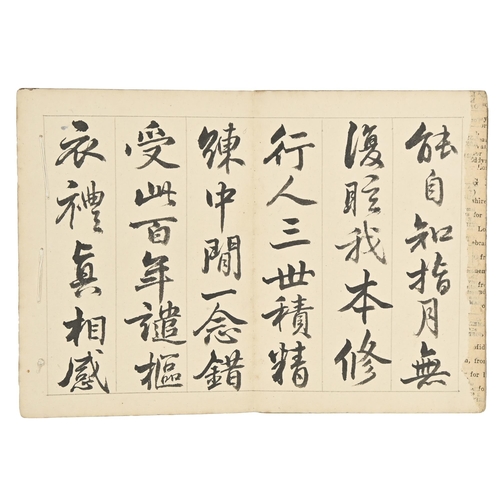 能自知指月無
復眩我本修
行人三世積精
練中間一念錯
受此百年譴樞
衣禮眞相感